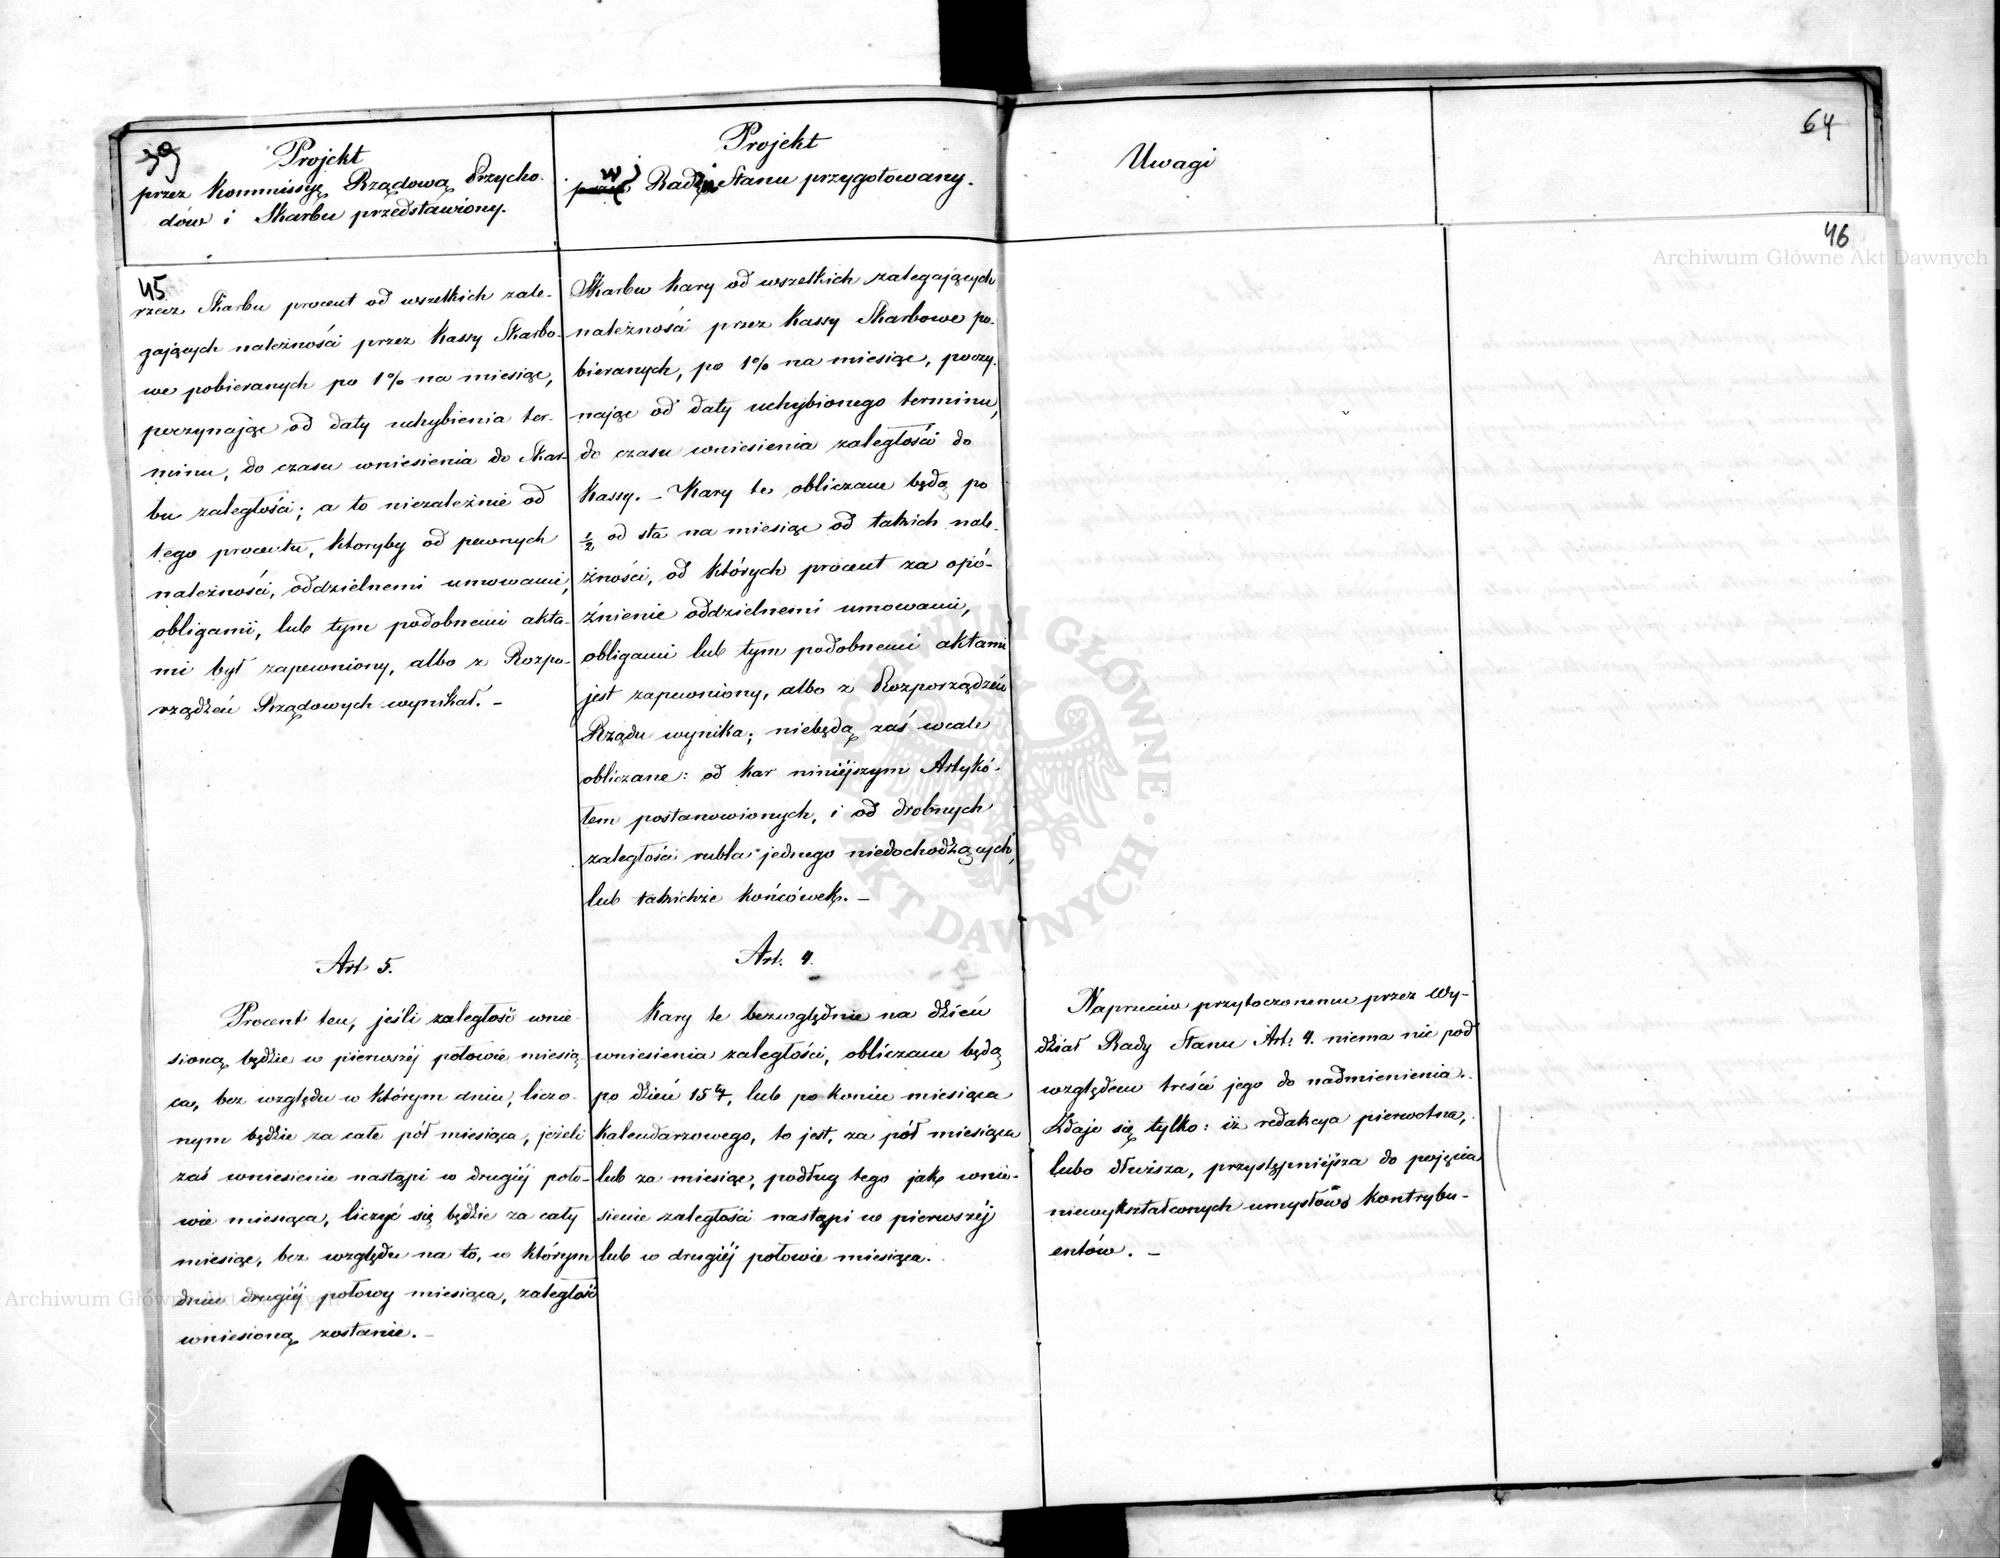 39
Projekt
przez Kommissyę Rządową Przycho-
dów i Skarbu przedstawiony.
Projekt
w Radzie Stanu przygotowany.
Uwagi
64
45
rzecz Skarbu procent od wszelkich zale-
gających należności przez Kassy Skarbo-
we pobieranych po 1% na miesiąc,
poczynając od daty uchybienia ter-
minu, do czasu wniesienia do Skar-
bu zaległości; a to niezależnie od
tego procentu, któryby od pewnych
należności, oddzielnemi umowami,
obligami, lub tym podobnemi akta-
mi był zapewniony, albo z Rozpo-
rządzeń Rządowych wynikał. –
Art 5.
Procent ten, jeśli zaległość wnie-
sioną będzie w pierwszéj połowie miesią-
ca, bez względu w którym dniu, liczo-
nym będzie za całe pół miesiąca, jeżeli
zaś wniesienie nastąpi w drugiéj poło-
wie miesiąca, liczyć się będzie za cały
miesiąc, bez względu na to, w którym
dniu drugiéj połowy miesiąca, zaległość
wniesioną zostanie. –
Skarbu kary od wszelkich zalegających
należności przez Kassy Skarbowe po-
bieranych, po 1% na miesiąc, poczy-
nając od daty uchybionego terminu,
do czasu wniesienia zaległości do
Kassy. – Kary te obliczane będą po
½ od sta na miesiąc od takich nale-
żności, od których procent za opó-
źnienie oddzielnemi umowami,
obligami lub tym podobnemi aktami
jest zapewniony, albo z Rozporządzeń
Rządu wynika; niebędą zaś wcale
obliczane: od kar niniéjszym Artykó-
łem postanowionych, i od drobnych
zaległości rubla jednego niedochodzących,
lub takichże końcówek. –
Art. 4.
Kary te bezwzględnie na dzień
wniesienia zaległości, obliczane będą
po dzień 15ty, lub po koniec miesiąca
Kalendarzowego, to jest, za pół miesiąca
lub za miesiąc, podług tego jak wnie-
sienie zaległości nastąpi w pierwszéj
lub w drugiéj połowie miesiąca.
46
Naprzeciw przytoczonemu przez Wy-
dział Rady Stanu Art: 4. niema nic pod
względem treści jego do nadmienienia.
Zdaje się tylko: iż redakcya pierwotna,
lubo dłuższa, przystępniéjsza do pojęcia
niewykształconych umysłów kontrybu-
entów. –
Archiwum Główne Akt Dawnych
Archiwum Główne Akt Dawnych
ARCHIWUM GŁÓWNE AKT DAWNYCH